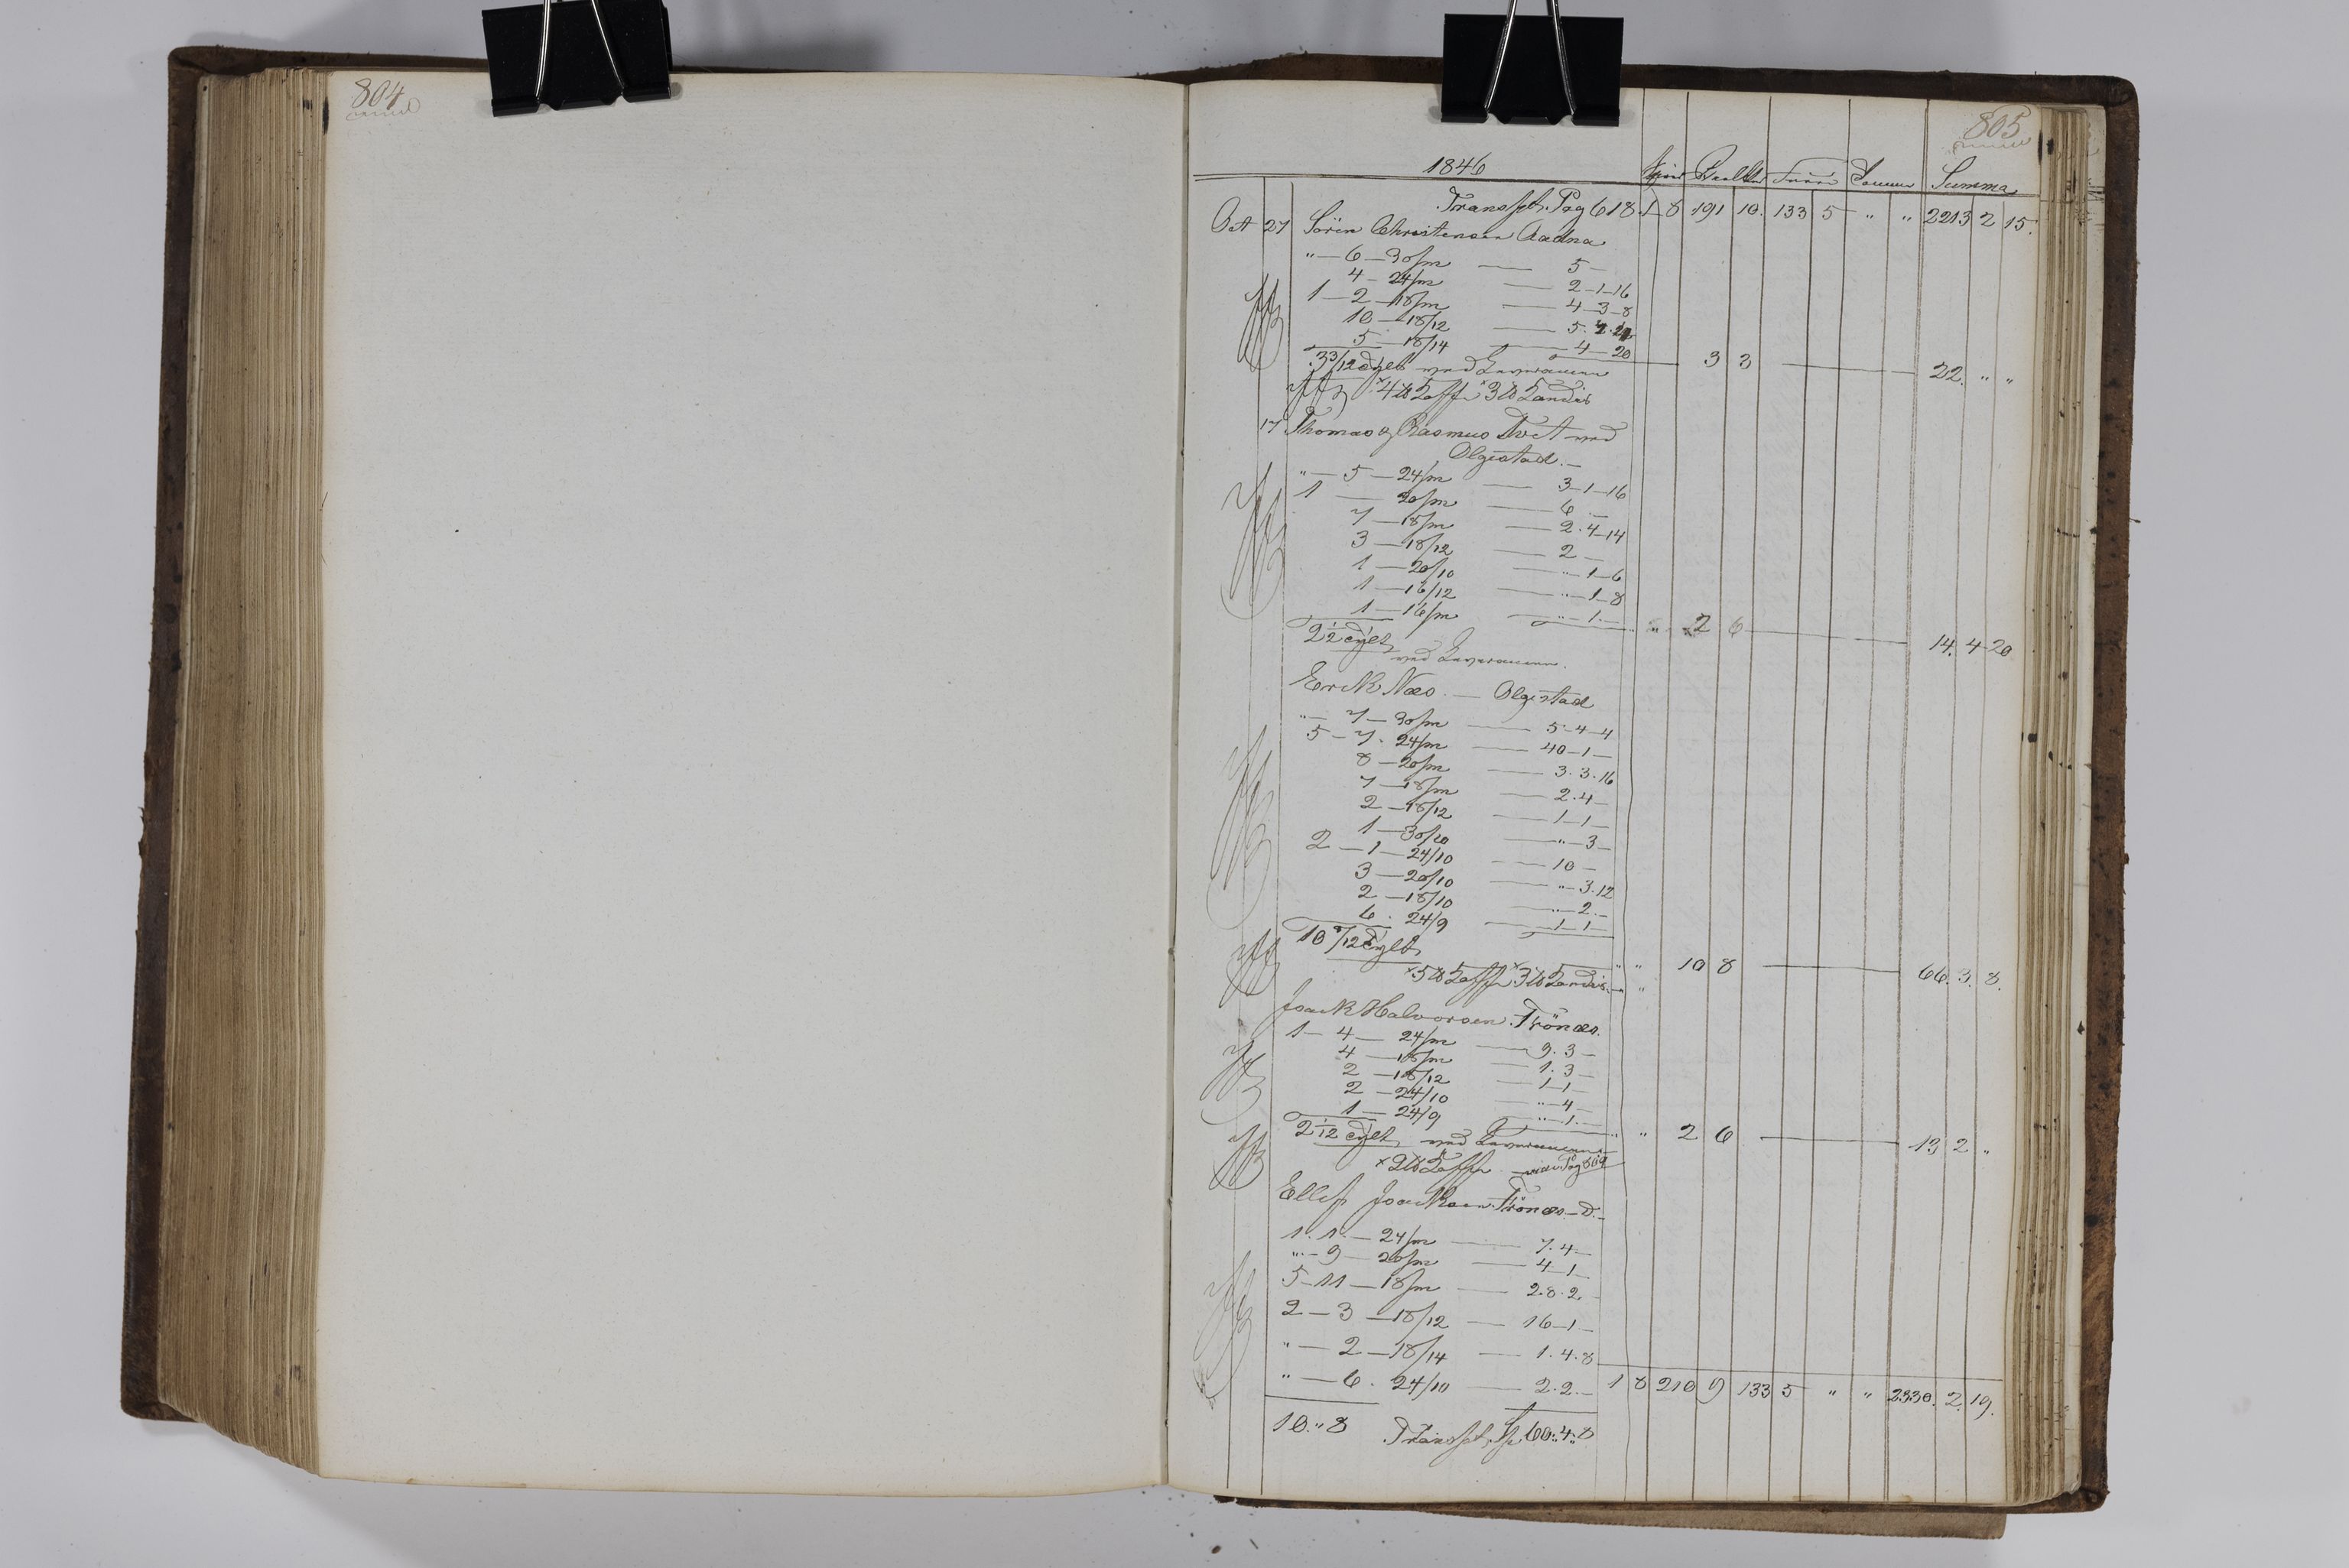 804
805
1846 Summa
Transpt. Pag 618 1 8 191 10 133 5 " " 2213 2 15
Oct 27 Sören Christensen Aadna
" — 6 — 30/m — 5 —
4 — 24/m — 2 — 1 — 16
1 — 2 — 18/m — 4 — 3 — 8
10 — 18/12 — 5.
5 — 18/14 — 4 — 20
3 3/12 Tylt ved Leverancen 3 3 — 22 " "
4 ℔ Kaffe 3 ℔ Kandis
17 Thomas & Rasmus Tvet ved
Olgestad. —
" — 5 — 24/m — 3 — 1 — 16
1 — 20/m — 6 —
7 — 18/m — 2 . 4 — 14
3 — 18/12 — 2 —
1 — 20/10 — " — 1 — 6
1 — 16/12 — " — 1 — 8
1 — 16/m — " — 1 . —
2 1/2 Tylt " 2 6 — 14. 4 20
ved Leverancen.
Erik Næs. — Olgestad
" — 7 — 30/m — 5 — 4 — 4
5 — 7 . 24/m — 40 — 1 —
8 — 20/m — 3 . 3 . 16
7 — 18/m — 2 . 4 —
2 — 18/12 — 1 — 1 —
1 — 30/10 — " — 3 —
2 — 1 — 24/10 — 10 —
3 — 20/10 — " — 3 . 12
2 — 18/10 — " — 2 . —
6 . 24/9 — 1 — 1 —
10 8/12 Tylt " " 10 8 — 66. 3. 8.
5 ℔ Kaffe 3 ℔ Kandis
Joack Halvorsen Trönæs.
1 — 4 — 24/m — 9 . 3 —
4 — 18/m — 1 . 3 —
2 — 18/12 — 1 — 1 —
2 — 24/10 — " — 4 —
1 — 24/9 — " — 1 . —
2 1/12 Tylt ved Leverancen " 2 6 — 13 2 "
2 ℔ Kaffe
Ellef Joacksen Trönæs — D. —
1 . 1 — 24/m — 7 . 4 —
" — 9 — 20/m — 4 — 1 —
5 — 11 — 18/m — 28 . 2 . —
2 — 3 — 18/12 — 16 — 1 —
" — 2 — 18/14 — 1 . 4 . 8
" — 6 . 24/10 — 2 . 2 . — 1 8 210 9 133 5 " " 2330. 2. 19.
10 " 8 Transpt. Sp 60 : 4 : 8